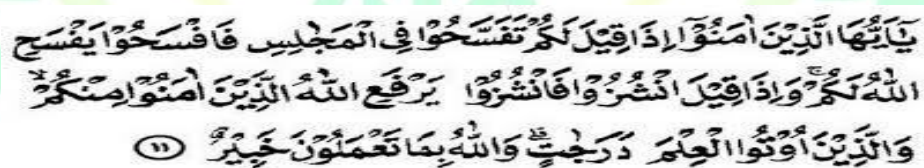 يٰٓاَيُّهَا الَّذِيْنَ اٰمَنُوْٓا اِذَا قِيْلَ لَكُمْ تَفَسَّحُوْا فِى الْمَجٰلِسِ فَافْسَحُوْا يَفْسَحِ
اللّٰهُ لَكُمْۚ وَاِذَا قِيْلَ انْشُزُوْا فَانْشُزُوْا يَرْفَعِ اللّٰهُ الَّذِيْنَ اٰمَنُوْا مِنْكُمْۙ
وَالَّذِيْنَ اُوْتُوا الْعِلْمَ دَرَجٰتٍۗ وَاللّٰهُ بِمَا تَعْمَلُوْنَ خَبِيْرٌ ۝١١